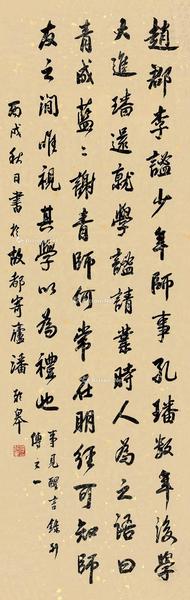 趙郡李謐少年師事孔璠數年後學
大進璠還就學謐請業時人為之語曰
青成藍藍謝青師何常在明經可知師
友之間唯視其學以為禮也
丙戌秋日書於故都寄廬潘齡皋
事見
傳之一